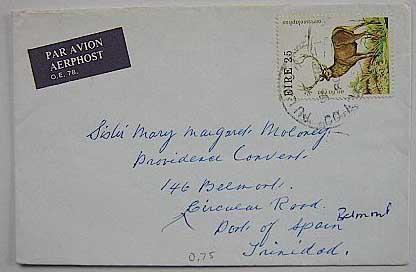 PAR AVION
AERPHOST
O.E. 78.
EIRE 25
Sister Mary Margaret Moloney
Providence Convent
146 Belmont.
Circular Road.
Belmont
Port of Spain
Trinidad.
0.75